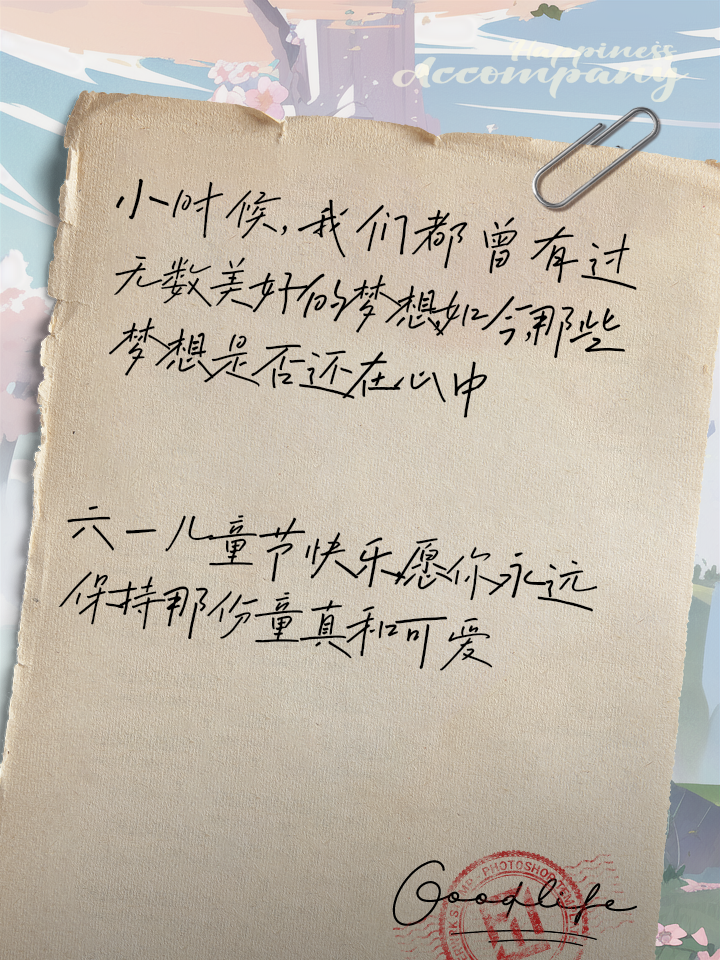 Happiness
Accompany
小时候,我们都曾有过
无数美好的梦想,如今,那些
梦想是否还在心中
六一儿童节快乐愿你永远
保持那份童真和可爱
Goodlife